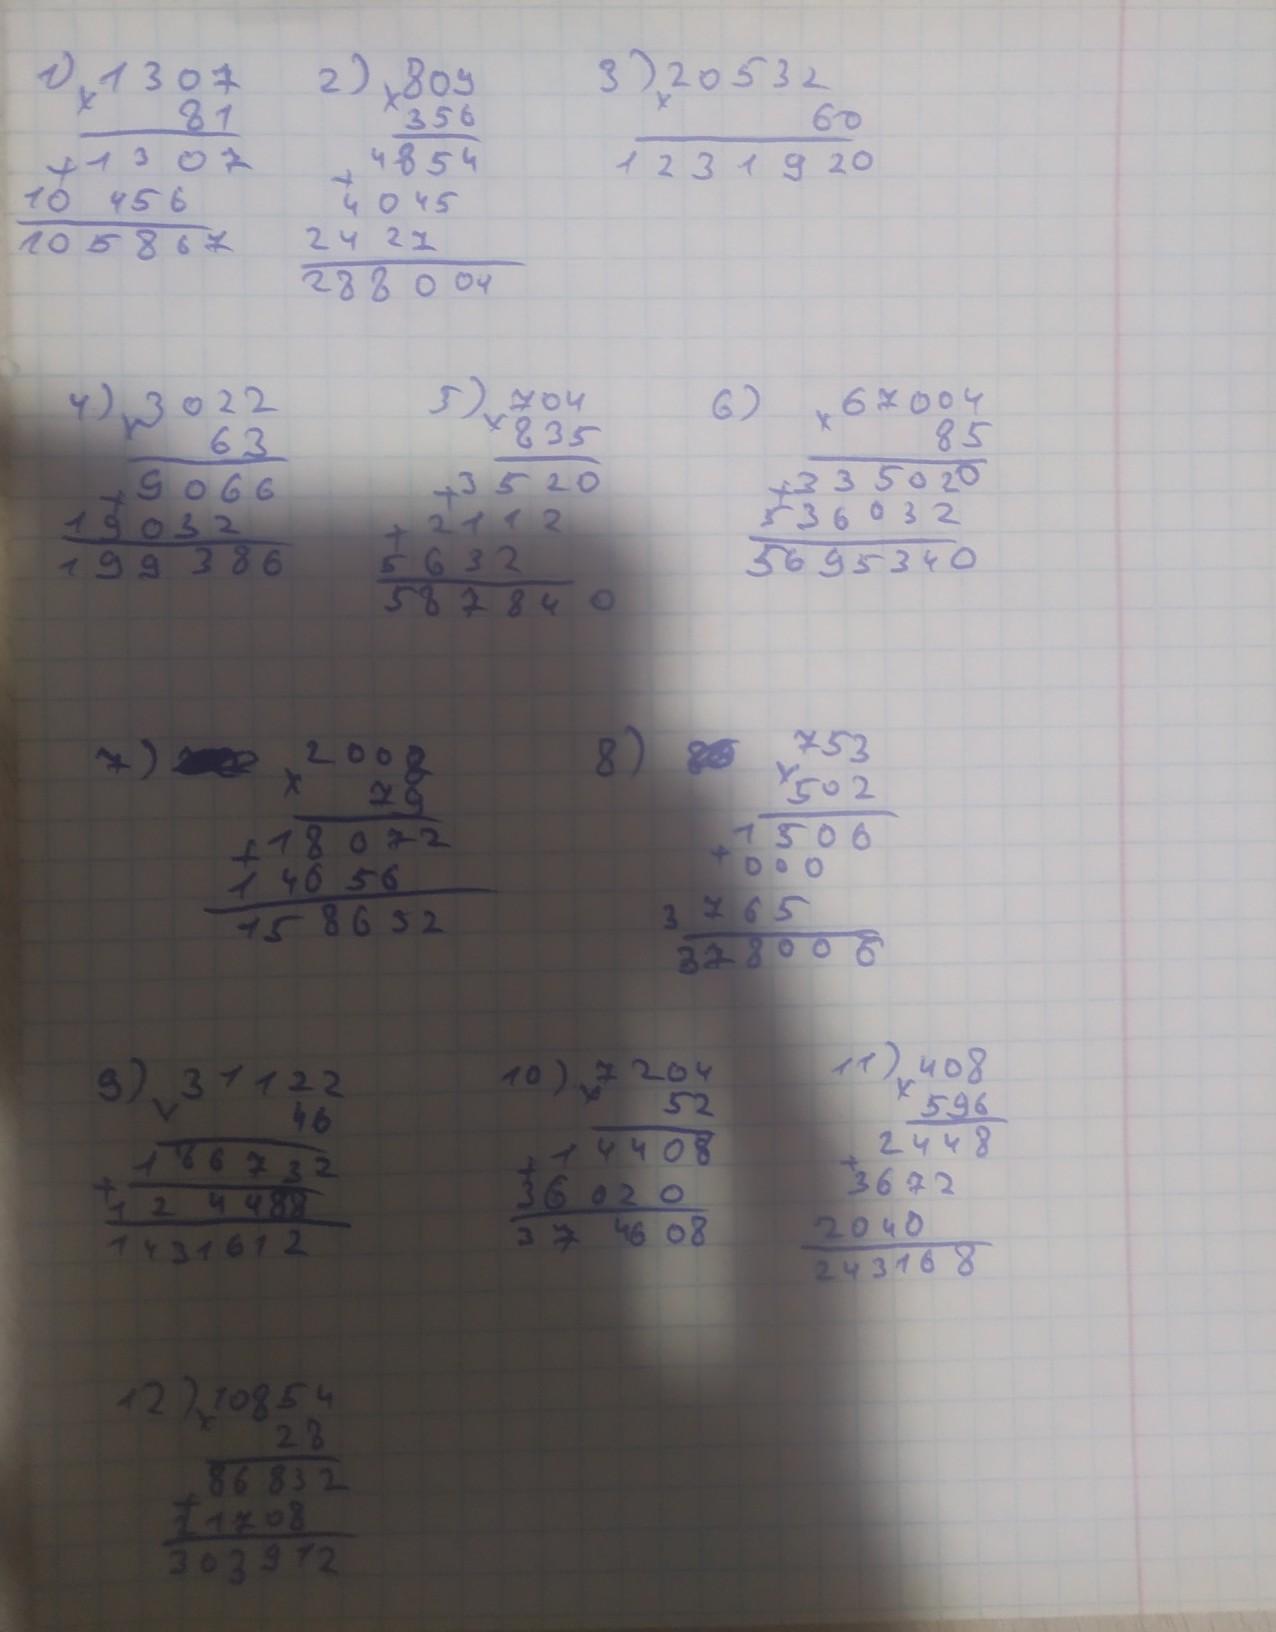 1) × 1307
81
+ 1307
10456
105867
2) × 809
356
+ 4854
4045
2427
288004
3) × 20532
60
1231920
4) × 3022
63
+ 9066
19032
199386
5) × 704
835
+ 3520
+ 2112
5632
587840
6) × 67004
85
+ 335020
536032
5695340
7) × 2008
79
+ 18072
14056
158632
8) × 753
502
1506
+ 000
3765
378006
9) × 31122
46
+ 186732
124488
1431612
10) × 7204
52
+ 14408
36020
374608
11) × 408
596
+ 2448
3672
2040
243168
12) × 10854
28
+ 86832
21708
303912